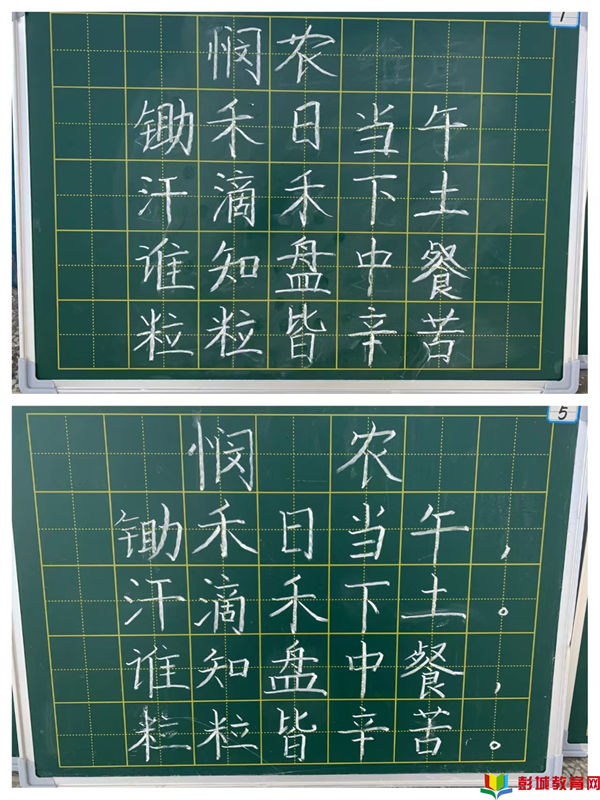 1
悯农
锄禾日当午
汗滴禾下土
谁知盘中餐
粒粒皆辛苦
5
悯农
锄禾日当午，
汗滴禾下土。
谁知盘中餐，
粒粒皆辛苦。
彭城教育网